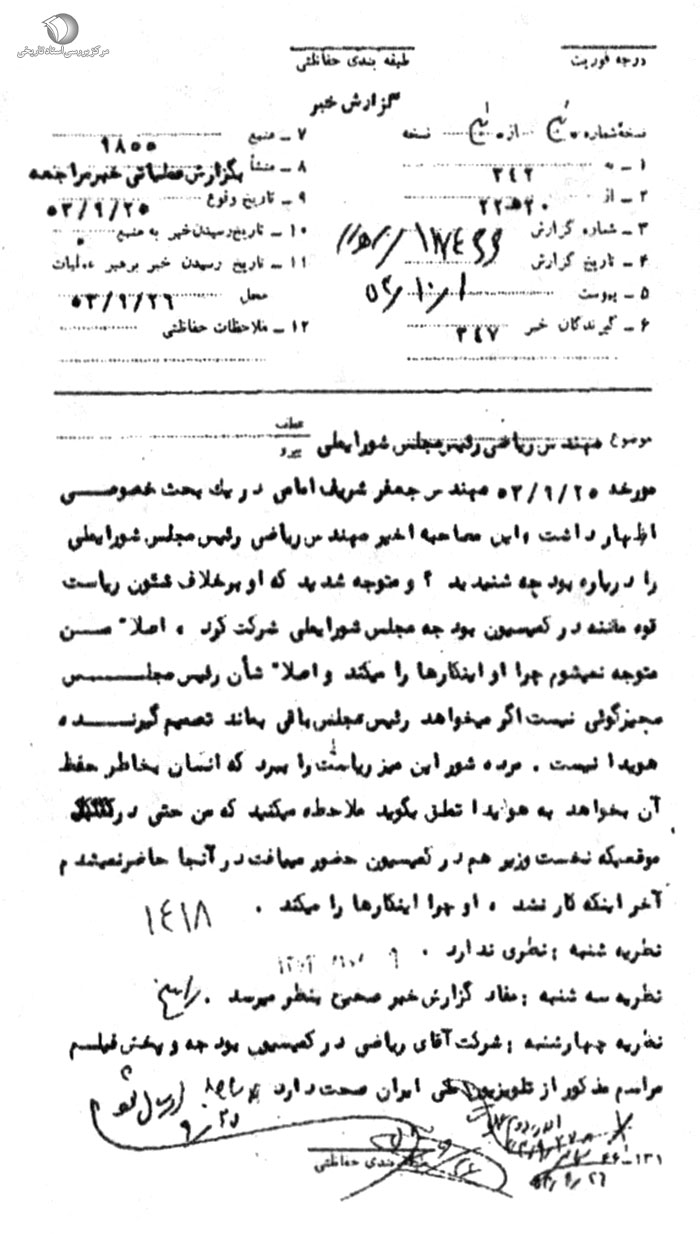 مرکز بررسی اسناد تاریخی
درجه فوریت
طبقه بندی حفاظتی
گزارش خبر
نسخهٔ شماره از نسخه
۱ ـ به ۳۴۲
۲ ـ از ۲۲ه۲۰
۳ ـ شماره گزارش
۴ ـ تاریخ گزارش
۵ ـ پیوست
۶ ـ گیرندگان خبر ۳۴۷
۷ ـ منبع ۹۸۰۰
۸ ـ منشأ بگزارش عملیاتی خبر مراجعه
۹ ـ تاریخ وقوع ۵۳/۹/۲۵
۱۰ ـ تاریخ رسیدن خبر به منبع
۱۱ ـ تاریخ رسیدن خبر برهبر عملیات
محل ۵۳/۹/۲۶
۱۲ ـ ملاحظات حفاظتی
موضوع مهندس ریاضی رئیس مجلس شورایملی
عطف
پیرو
مورخه ۵۳/۹/۲۵ مهندس جعفر شریف امامی در یك بحث خصوصی
اظهار داشت ، این مصاحبه اخیر مهندس ریاضی رئیس مجلس شورایملی
را درباره بودجه شنیدید ؟ و متوجه شدید که او برخلاف شئون ریاست
قوه مقننه در کمیسیون بودجه مجلس شورایملی شرکت کرد ، اصلا" مــن
متوجه نمیشوم چرا او اینکارها را میکند و اصلا" شأن رئیس مجلــــس
مجیزگوئی نیست اگر میخواهد رئیس مجلس باقی بماند تصمیم گیرنـــده
هویدا نیست . مرده شور این میز ریاست را ببرد که انسان بخاطر حفظ
آن بخواهد به هویدا تملق بگوید ملاحظه میکنید که من حتی در
موقعیکه نخست وزیر هم در کمیسیون حضور مییافت در آنجا حاضر نمیشدم
آخر اینکه کار نشد ، او چرا اینکارها را میکند .
۱۴۱۸
نظریه شنبه : نظری ندارد .
نظریه سه شنبه : مفاد گزارش خبر صحیح بنظر میرسد .
نظریه چهارشنبه : شرکت آقای ریاضی در کمیسیون بودجه و پخش فیلــم
مراسم مذکور از تلویزیون ملی ایران صحت دارد
۹/۲۵
بندی حفاظتی
۵۳/۹/۲۶